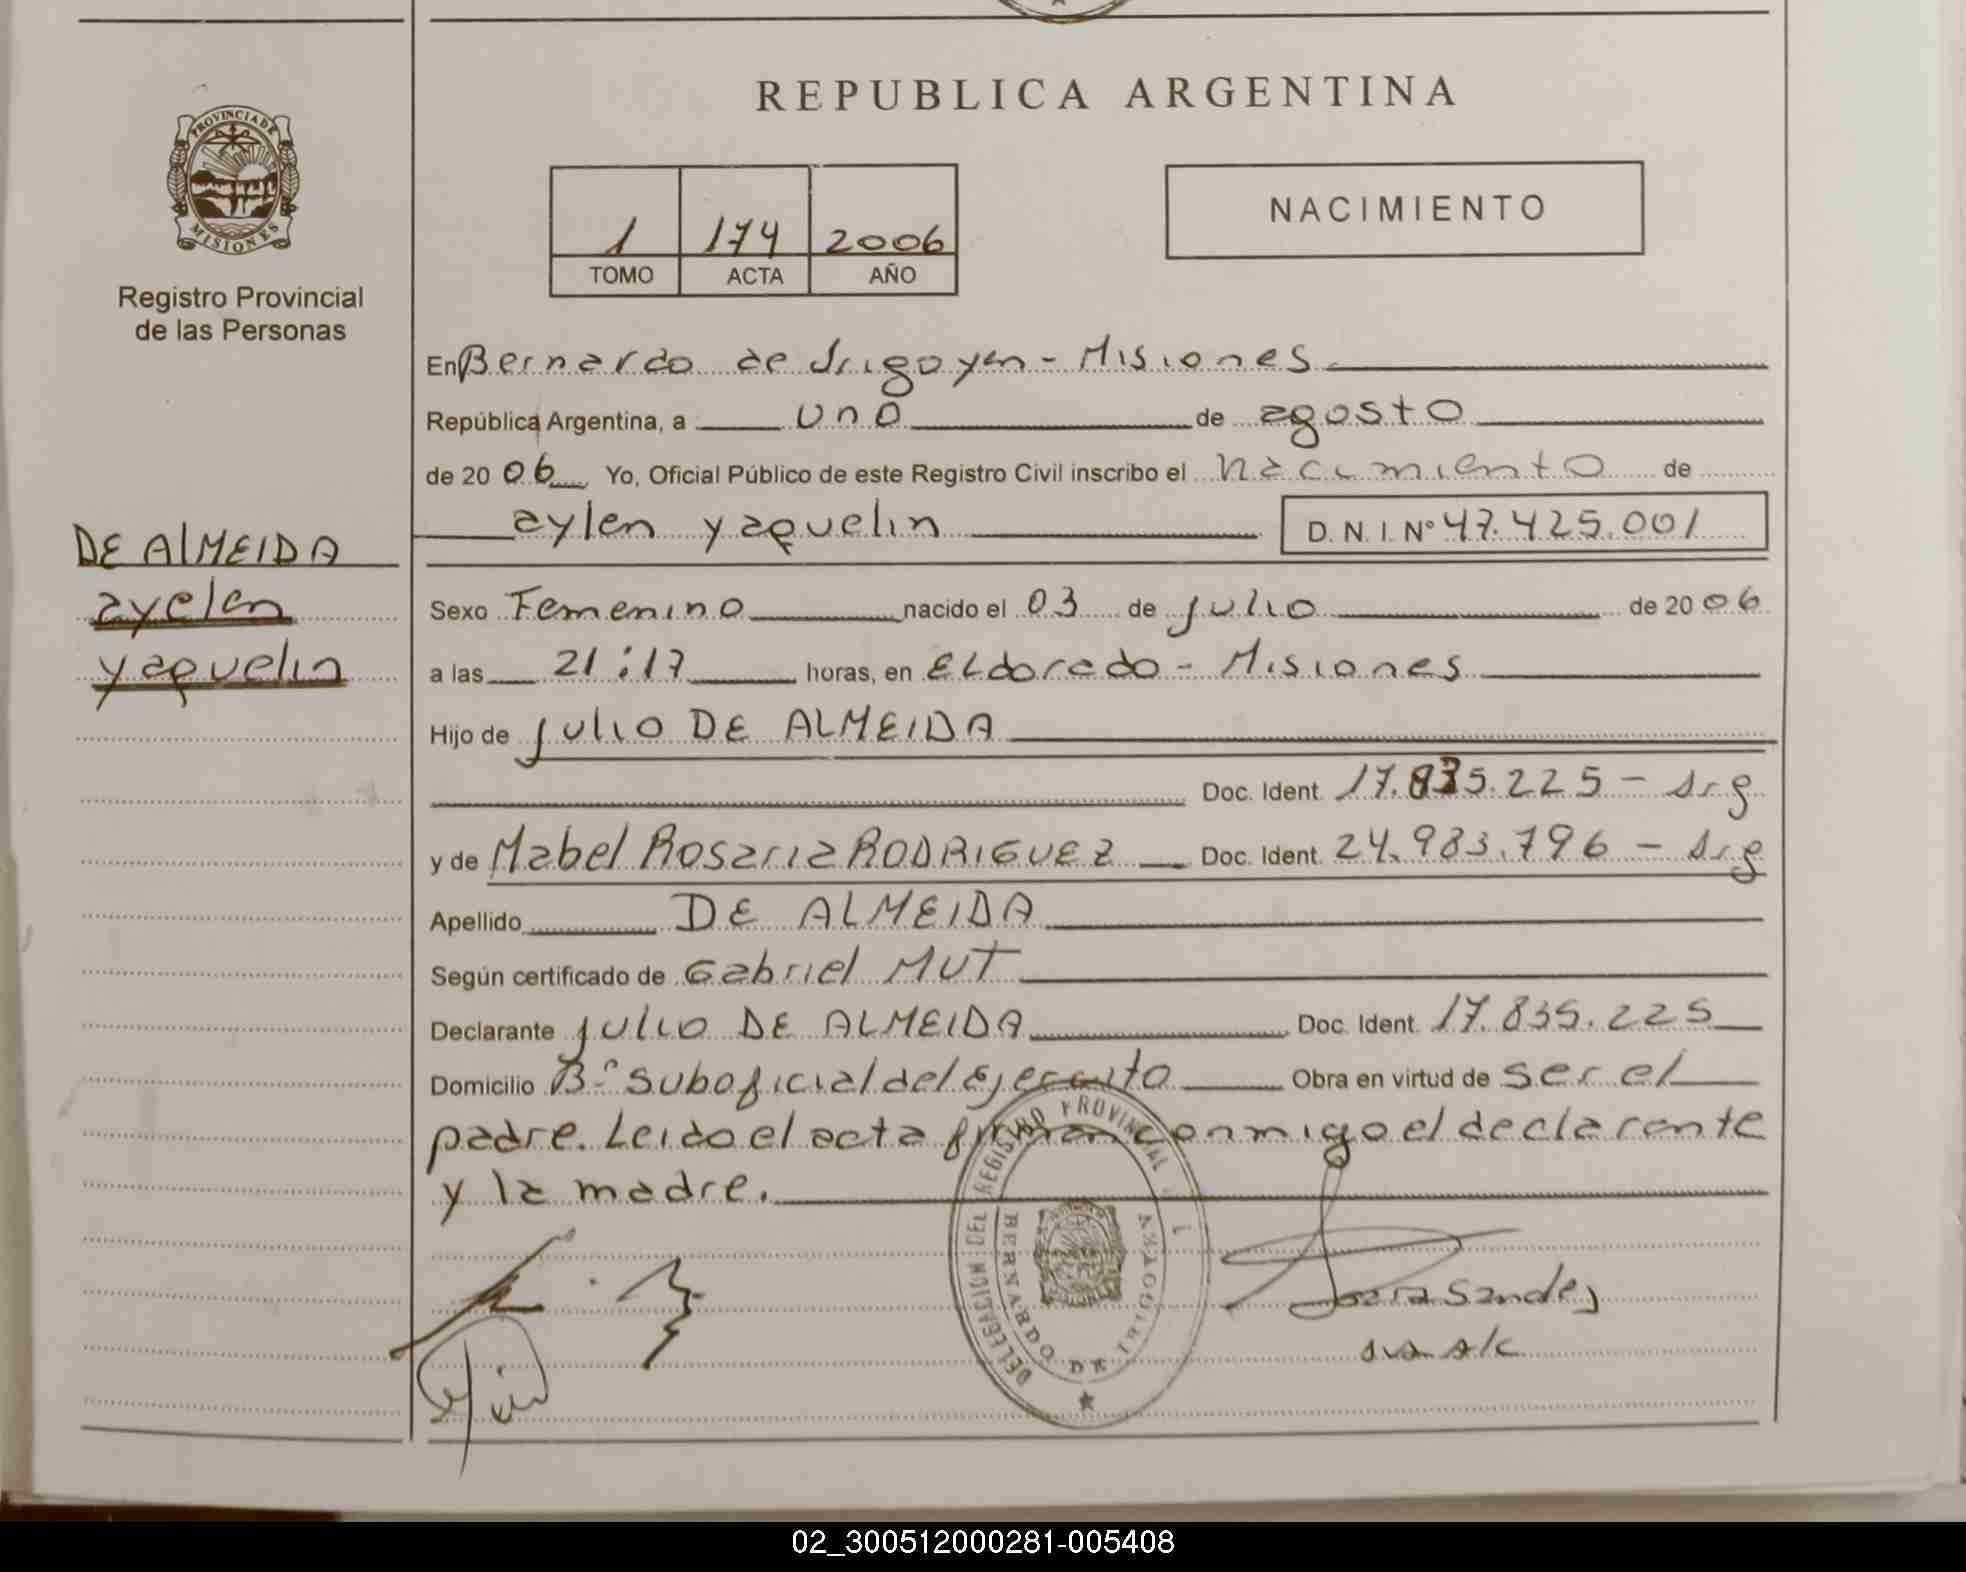 REPUBLICA ARGENTINA
PROVINCIA DE
MISIONES
Registro Provincial
de las Personas
1 174 2006
TOMO ACTA AÑO
NACIMIENTO
En Bernardo de Irigoyen - Misiones
República Argentina, a uno de agosto
de 20 06 Yo, Oficial Público de este Registro Civil inscribo el nacimiento de
aylen yaquelin D. N. I. Nº 47.425.001
DE ALMEIDA
ayelen
yaquelin
Sexo Femenino nacido el 03 de julio de 20 06
a las 21:17 horas, en ELdorado - Misiones
Hijo de julio DE ALMEIDA
Doc. Ident. 17.835.225 - Arg
y de Mabel Rosaria RODRIGUEZ Doc. Ident. 24.983.796 - Arg
Apellido DE ALMEIDA
Según certificado de Gabriel MUT
Declarante julio DE ALMEIDA Doc. Ident. 17.835.225
Domicilio Bº Suboficial del Ejercito Obra en virtud de ser el
padre. Leido el acta firman conmigo el declarante
y la madre.
DELEGACION DEL REGISTRO PROVINCIAL
BERNARDO DE IRIGOYEN
02_300512000281-005408